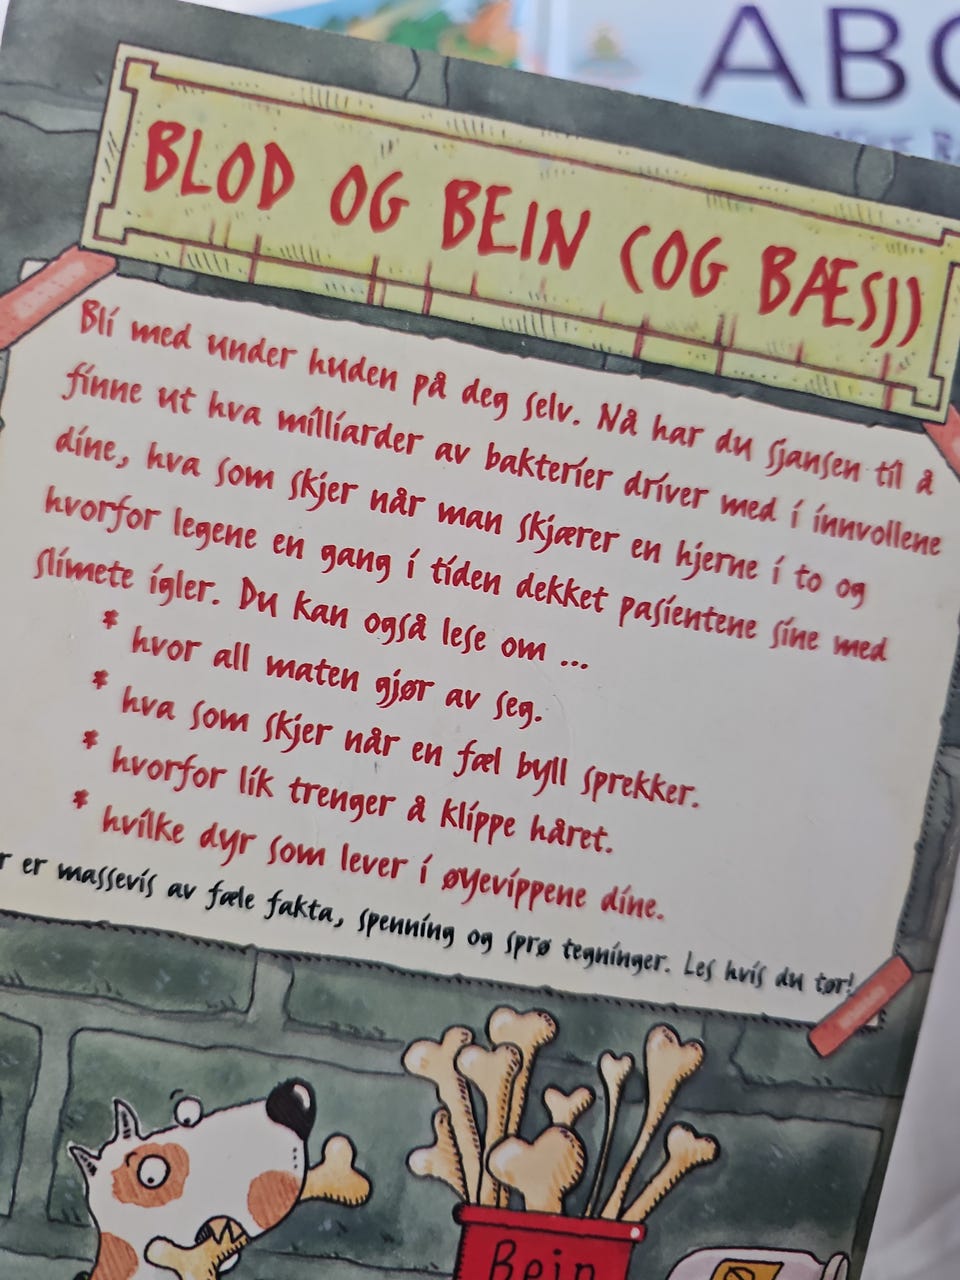 ABC
BLOD OG BEIN (OG BÆSJ)
Bli med under huden på deg selv. Nå har du sjansen til å
finne ut hva milliarder av bakterier driver med i innvollene
dine, hva som skjer når man skjærer en hjerne i to og
hvorfor legene en gang i tiden dekket pasientene sine med
slimete igler. Du kan også lese om ...
* hvor all maten gjør av seg.
* hva som skjer når en fæl byll sprekker.
* hvorfor lik trenger å klippe håret.
* hvilke dyr som lever i øyevippene dine.
r er massevis av fæle fakta, spenning og sprø tegninger. Les hvis du tør!
Bein